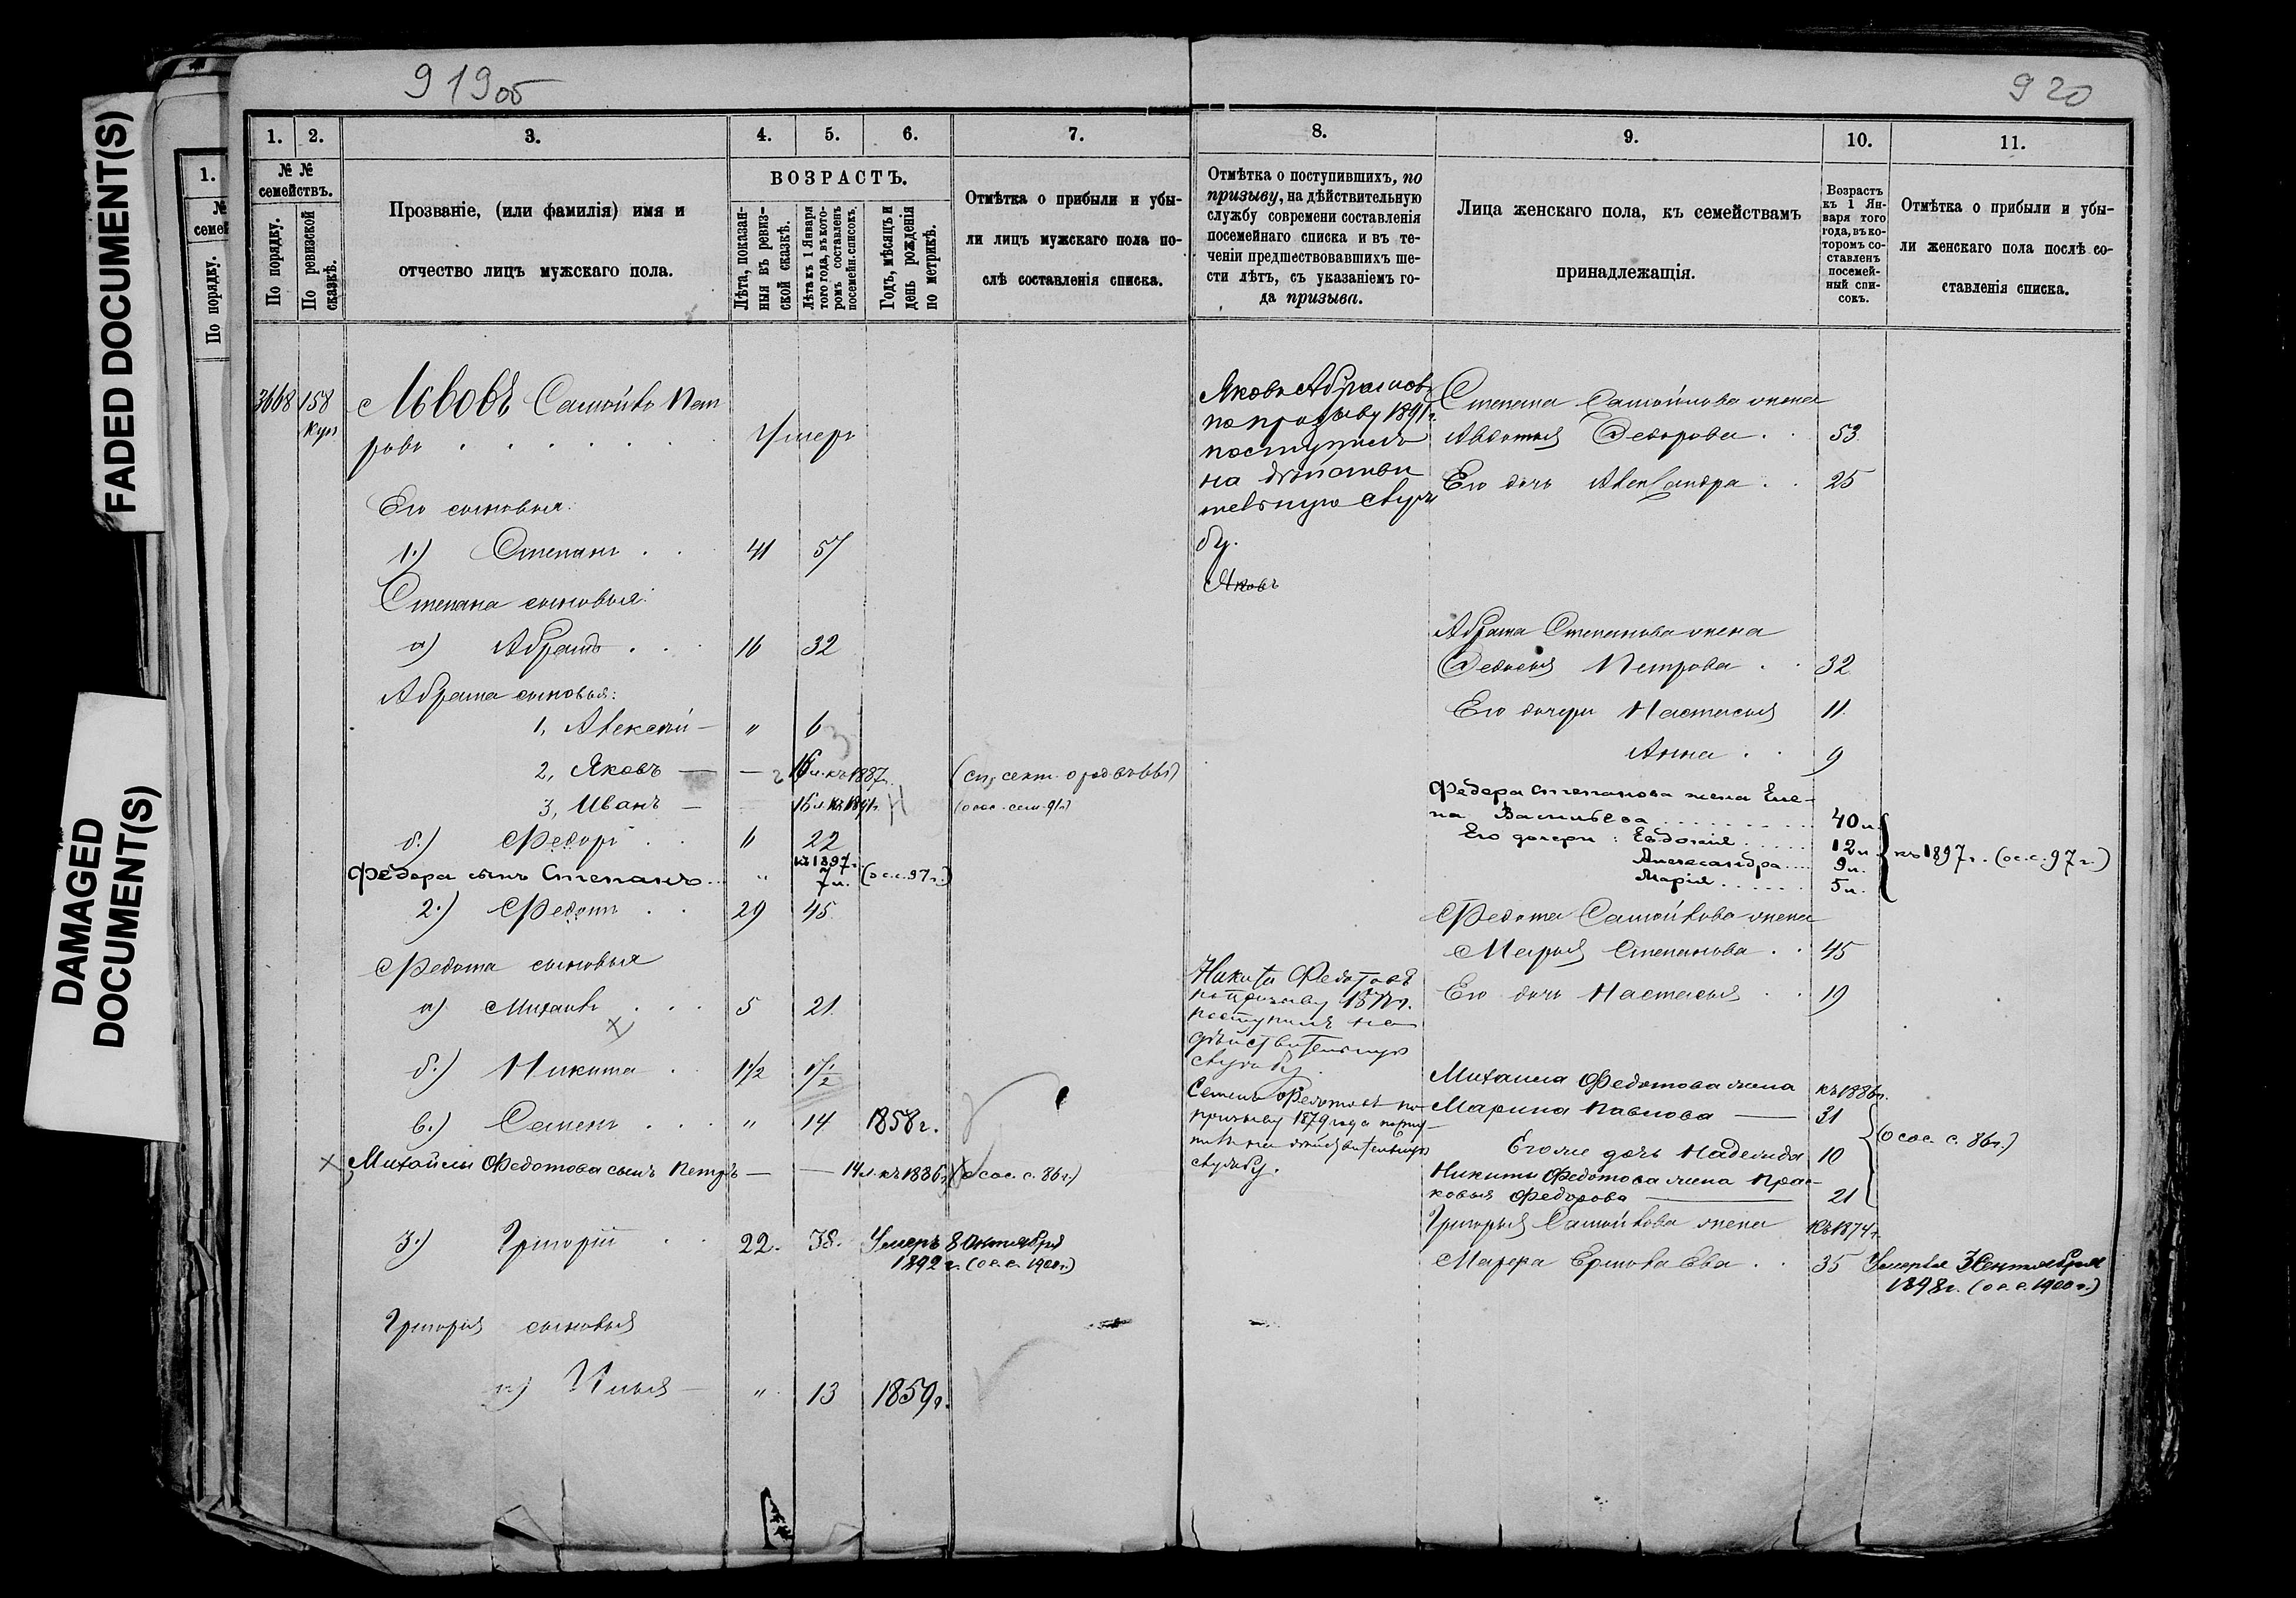 FADED DOCUMENT(S)
DAMAGED
DOCUMENT(S)
1.
№
семей
По порядку.
919об
1. 2. 3. 4. 5. 6. 7.
№ №
семействъ.
По порядку.
По ревизской
сказкѣ.
Прозваніе, (или фамилія) имя и
отчество лицъ мужскаго пола.
ВОЗРАСТЪ.
Лѣта, показан-
ныя въ ревиз-
ской сказкѣ.
Лѣта къ 1 Января
того года, въ кото-
ромъ составленъ
посемейн. списокъ.
Годъ, мѣсяцъ и
день рожденія
по метрикѣ.
Отмѣтка о прибыли и убы-
ли лицъ мужскаго пола по-
слѣ составленія списка.
3668 158 Львовъ Самойло Пет
ровъ Умеръ
Его сыновья:
1.) Степанъ . . 41 57
Степана сыновья:
а) Абрамъ . . . 16 32
Абрама сыновья:
1, Алексѣй — " 6
2, Яковъ — — 16 л. къ 1887 г.
3, Иванъ — 16 л. къ 1891 г. (о сос. сем. 91 г.)
б.) Федоръ . . 6 22
къ 1897 г.
Федора сынъ Степанъ . . " 7 л. (о с. с. 97 г.)
2.) Федотъ . . 29 45
Федота сыновья
а) Михаилъ . . . 5 21
б.) Никита . 1 1/2
в.) Семенъ . . . " 14 1858 г.
Михаила Федотова сынъ Петръ — — 14 л. къ 1886 г. (о сос. с. 86 г.)
3.) Григорій . . 22. 38. Умеръ 8 Октября
1892 г. (о с. с. 1900 г.)
Григорія сыновья
а) Илья — " 13 1859 г.
920
8. 9. 10. 11.
Отмѣтка о поступившихъ, по
призыву, на дѣйствительную
службу современи составленія
посемейнаго списка и въ те-
ченіи предшествовавшихъ ше-
сти лѣтъ, съ указаніемъ го-
да призыва.
Лица женскаго пола, къ семействамъ
принадлежащія.
Возрастъ
къ 1 Ян-
варя того
года, въ ко-
торомъ со-
ставленъ
посемей-
ный спи-
сокъ.
Отмѣтка о прибыли и убы-
ли женскаго пола послѣ со-
ставленія списка.
Яковъ Абрамовъ
по призыву 1891 г.
поступилъ
на дѣйстви
тельную служ
бу.
Яковъ
Никита Федотовъ
по призыву
поступилъ на
дѣйствительную
службу.
Семенъ Федотовъ по
призыву 1879 года посту
пилъ на дѣйствительную
службу.
Степана Самойлова жена
Авдотья Федорова . . 53
Его дочь Александра . . 25
Абрама Степанова жена
Федосья Петрова . . 32
Его дочери Настасья 11
Анна . . 9
Федора Степанова жена Еле-
на Васильева . . . . . 40 л.
Его дочери: Евдокія . . . . . 12 л. къ 1897 г. (о с. с. 97 г.)
Александра . . . 9 л.
Марія . . . . . . 5 л.
Федота Самойлова жена
Марья Степанова . . 45
Его дочь Настасья . . 19
Михаила Федотова жена къ 1886 г.
Марина Павлова — 31
Его же дочь Надежда 10 (о сос. с. 86 г.)
Никиты Федотова жена Прас-
ковья Федорова — 21
Григорья Самойлова жена къ 1874 г.
Марфа . . 35 Умерла 3 Сентября
1898 г. (о с. с. 1900 г.)